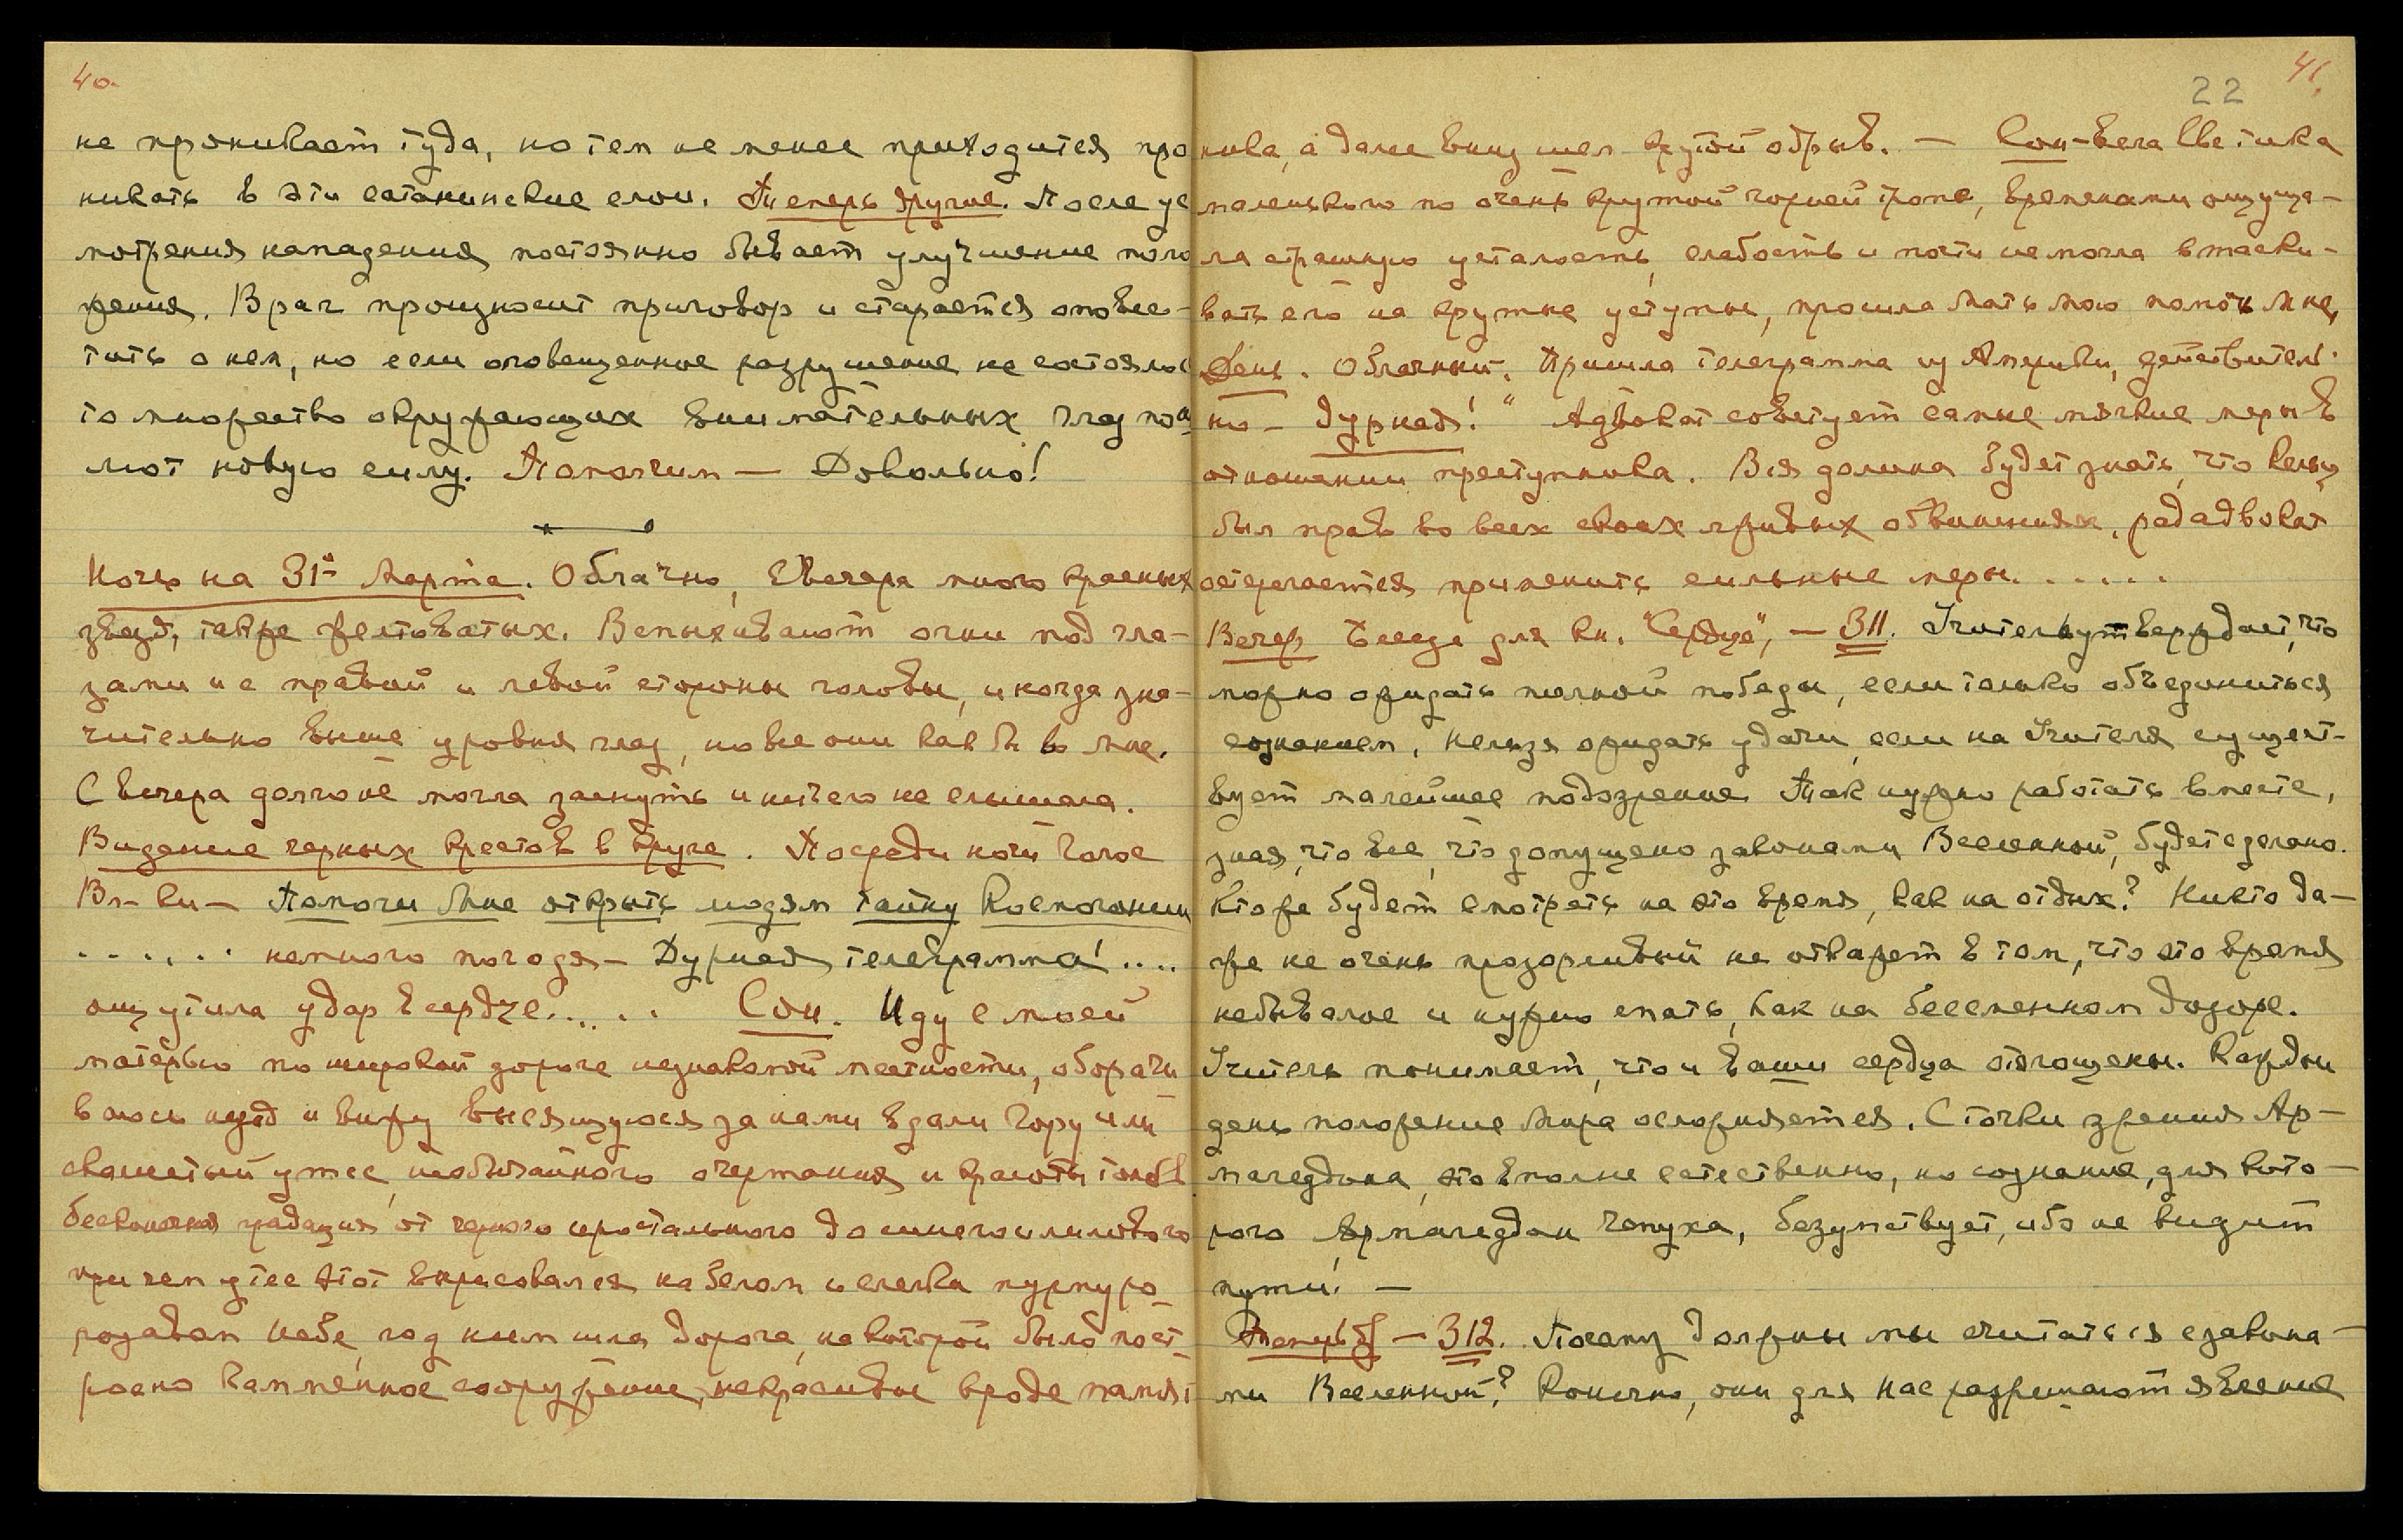 40.
не проникает туда, но тем не менее приходится про
никать в эти сатанинские слои. Теперь другие. После ус
мотрения нападения постоянно бывает улучшение поло
жения. Враг произносит приговор и старается опове-
тить о нем, но если оповещенное разрушение не состоялось
то множество окружающих внимательных глаз пош
лют новую силу. Поможем — Довольно!
Ночь на 31ое Марта. Облачно, С вечера много красных
звезд, также желтоватых. Вспыхивают огни под гла-
зами и с правой и левой стороны головы, иногда зна-
чительно выше уровня глаз, но все они как бы во мне.
С вечера долго не могла заснуть и ничего не слышала.
Видение черных крестов в круге. Посреди ночи Голос
Вл-ки — Помоги Мне открыть людям тайну Космогонии
...... немного погодя — Дурная телеграмма! ....
ощутила удар в сердце...... Сон. Иду с моей
матерью по широкой дороге незнакомой местности, оборачи
ваюсь назад и вижу высящуюся за нами вдали Гору или
скалистый утес необычайного очертания и красоты тонов
бесконечная градация от черного кристального до синего и лилового
причем утес этот вырисовался на белом и слегка пурпуро-
розовом небе, под ним шла дорога, на которой было пост-
роено каменное сооружение, некрасивое вроде памят
41.
22
ника, а далее вниз шел крутой обрыв. — Сон-вела Светика
маленького по очень крутой горной тропе, временами ощуща-
ла страшную усталость, слабость и почти не могла втаски-
вать его на крутые уступы, просила Мать мою помочь мне,
День. Облачный. Пришла телеграмма из Америки, действитель-
но — дурная! " Адвокат советует самые мягкие меры в
отношении преступника. Вся долина будет знать, что
был прав во всех своих лживых обвинениях, раз адвокат
остерегается применить сильные меры. . . . . .
Вечер Беседа для кн. "Сердце", — 311. Учитель утверждает, что
можно ожидать полной победы, если только объединиться
сознанием. Нельзя ожидать удачи, если на Учителя сущест-
вует малейшее подозрение. Так нужно работать вместе,
зная, что все, что допущено законами Вселенной, будет сделано.
Кто же будет смотреть на это время, как на отдых? Никто да-
же не очень прозорливый не откажет в том, что это время
небывалое и нужно стать, как на бессменном дозоре.
Учитель понимает, что и ваши сердца отягощены. Каждый
день положение Мира осложняется. С точки зрения Ар-
магеддона, это вполне естественно, но сознание, для кото-
рого Армагеддон чепуха, безумствует, ибо не видит
пути. —
— 312. Почему должны мы считаться с закона-
ми Вселенной? Конечно, они для нас разрешают явление